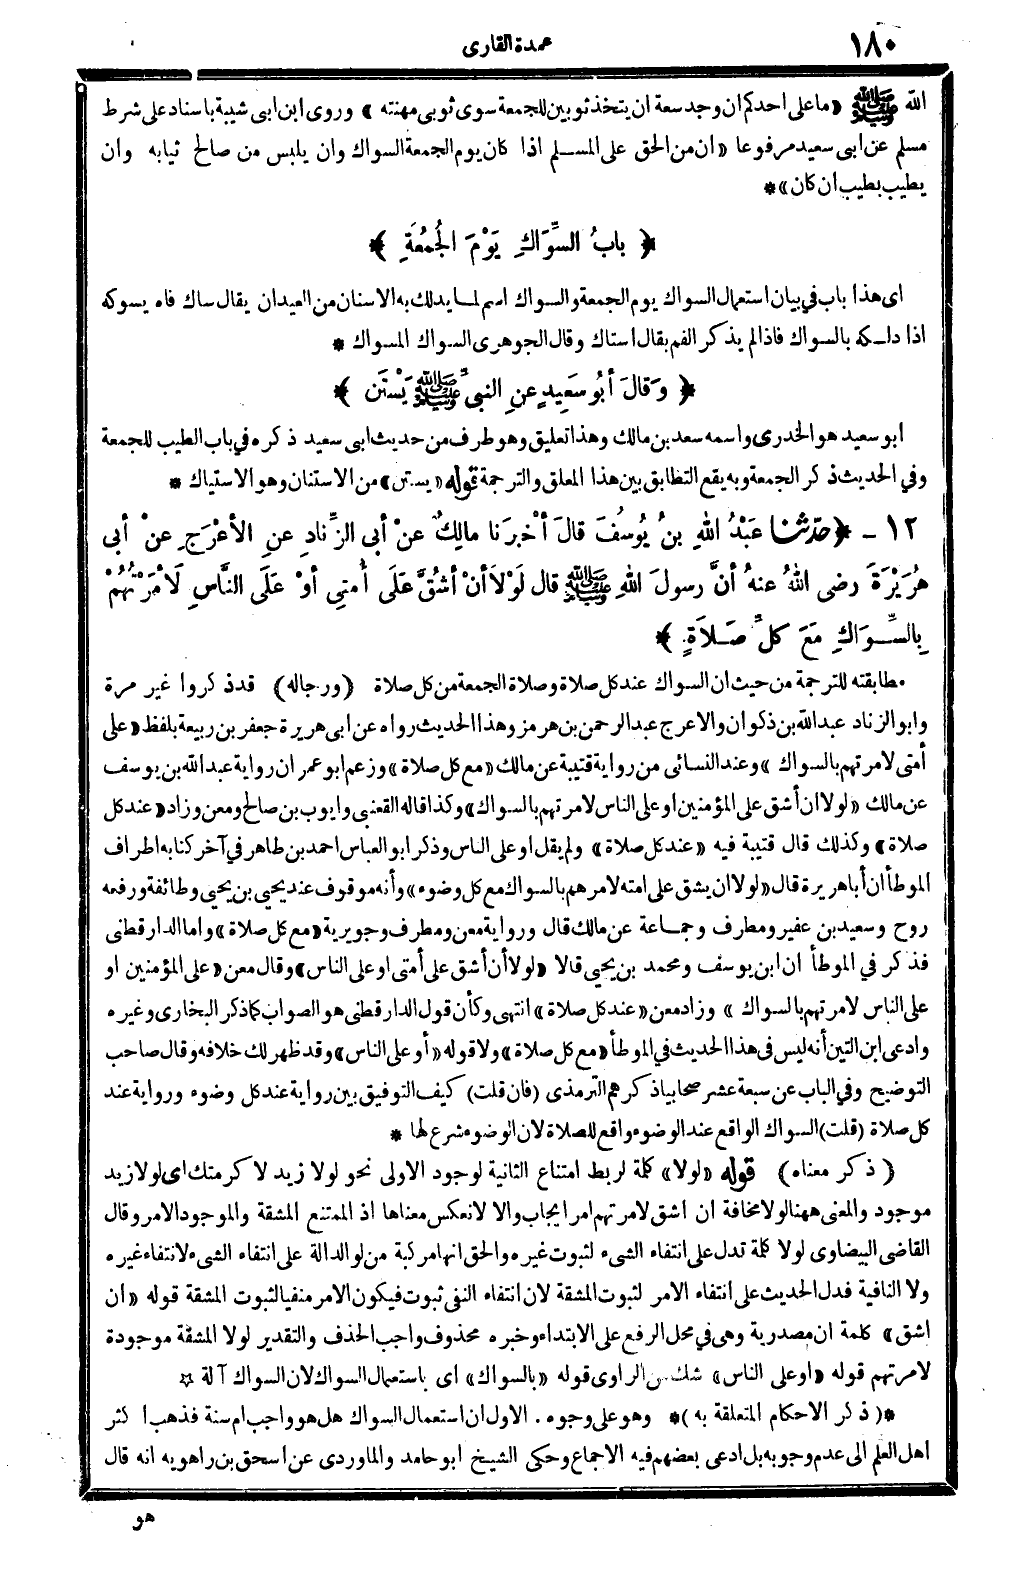 ١٨٠
عمدة القارى
الله ﷺ «ما على احدكم ان وجد سعة ان يتخذ ثوبين للجمعة سوى ثوبى مهنته» وروى ابن ابى شيبة باسناد على شرط
مسلم عن ابى سعيد مرفوعا «ان من الحق على المسلم اذا كان يوم الجمعة السواك وان يلبس من صالح ثيابه وان
يطيب بطيب ان كان» *
﴿ بابُ السِّوَاكِ يَوْمَ الجُمُعَةِ ﴾
اى هذا باب فى بيان استعمال السواك يوم الجمعة والسواك اسم لما يدلك به الاسنان من العيدان يقال ساك فاه يسوكه
اذا دلكه بالسواك فاذا لم يذكر الفم يقال استاك وقال الجوهرى السواك المسواك *
﴿ وَقالَ أبُو سَعِيدٍ عنِ النبىِّ ﷺ يَسْتَن ﴾
ابو سعيد هو الخدرى واسمه سعد بن مالك وهذا تعليق وهو طرف من حديث ابى سعيد ذكره فى باب الطيب للجمعة
وفى الحديث ذكر الجمعة وبه يقع التطابق بين هذا المعلق والترجمة قوله «يستن» من الاستنان وهو الاستياك *
١٢ - ﴿حدّثنا عَبْدُ اللهِ بنُ يُوسُفَ قالَ أخْبرَنا مالِكٌ عنْ أبى الزِّنادِ عنِ الأعْرَجِ عنْ أبى
هُرَيْرَةَ رضى اللهُ عنهُ أنَّ رسولَ اللهِ ﷺ قال لَوْلاَ أنْ أشُقَّ عَلَى أُمتِى أوْ عَلَى النَّاسِ لَأمَرْتُهُمْ
بِالسِّوَاكِ مَعَ كلِّ صَلاَةٍ ﴾
مطابقته للترجمة من حيث ان السواك عند كل صلاة وصلاة الجمعة من كل صلاة (ورجاله) قد ذكروا غير مرة
وابو الزناد عبدالله بن ذكوان والاعرج عبدالرحمن بن هرمز وهذا الحديث رواه عن ابى هريرة جعفر بن ربيعة بلفظ «على
أمتى لامرتهم بالسواك» وعند النسائى من رواية قتيبة عن مالك «مع كل صلاة» وزعم ابو عمر ان رواية عبدالله بن يوسف
عن مالك «لولا ان أشق على المؤمنين او على الناس لامرتهم بالسواك» وكذا قاله القعنبى وايوب بن صالح ومعن وزاد «عند كل
صلاة» وكذلك قال قتيبة فيه «عند كل صلاة» ولم يقل او على الناس وذكر ابو العباس احمد بن طاهر فى آخر كتابه اطراف
الموطأ أن أبا هريرة قال «لولا ان يشق على امته لامرهم بالسواك مع كل وضوء» وأنه موقوف عند يحيى بن يحيى وطائفة ورفعه
روح وسعيد بن عفير ومطرف وجماعة عن مالك قال ورواية معن ومطرف وجويرية «مع كل صلاة» واما الدارقطنى
فذكر فى الموطأ ان ابن يوسف ومحمد بن يحيى قالا «لولا أن أشق على أمتى او على الناس» وقال معن «على المؤمنين او
على الناس لامرتهم بالسواك» وزاد معن «عند كل صلاة» انتهى وكأن قول الدارقطنى هو الصواب كما ذكر البخارى وغيره
وادعى ابن التين أنه ليس فى هذا الحديث فى الموطأ «مع كل صلاة» ولا قوله «أو على الناس» وقد ظهر لك خلافه وقال صاحب
التوضيح وفى الباب عن سبعة عشر صحابيا ذكرهم الترمذى (فان قلت) كيف التوفيق بين رواية عند كل وضوء ورواية عند
كل صلاة (قلت) السواك الواقع عند الوضوء واقع للصلاة لان الوضوء شرع لها *
(ذكر معناه) قوله «لولا» كلمة لربط امتناع الثانية لوجود الاولى نحو لولا زيد لاكرمتك اى لولا زيد
موجود والمعنى ههنا لولا مخافة ان اشق لامرتهم امر ايجاب والا لانعكس معناها اذ الممتنع المشقة والموجود الامر وقال
القاضى البيضاوى لولا كلمة تدل على انتفاء الشىء لثبوت غيره والحق انها مركبة من لو الدالة على انتفاء الشىء لانتفاء غيره
ولا النافية فدل الحديث على انتفاء الامر لثبوت المشقة لان انتفاء النفى ثبوت فيكون الامر منفيا لثبوت المشقة قوله «أن
اشق» كلمة ان مصدرية وهى فى محل الرفع على الابتداء وخبره محذوف واجب الحذف والتقدير لولا المشقة موجودة
لامرتهم قوله «او على الناس» شك من الراوى قوله «بالسواك» اى باستعمال السواك لان السواك آلة ☆
*(ذكر الاحكام المتعلقة به)* وهو على وجوه. الاول ان استعمال السواك هل هو واجب ام سنة فذهب اكثر
اهل العلم الى عدم وجوبه بل ادعى بعضهم فيه الاجماع وحكى الشيخ ابو حامد والماوردى عن اسحق بن راهويه انه قال
هو